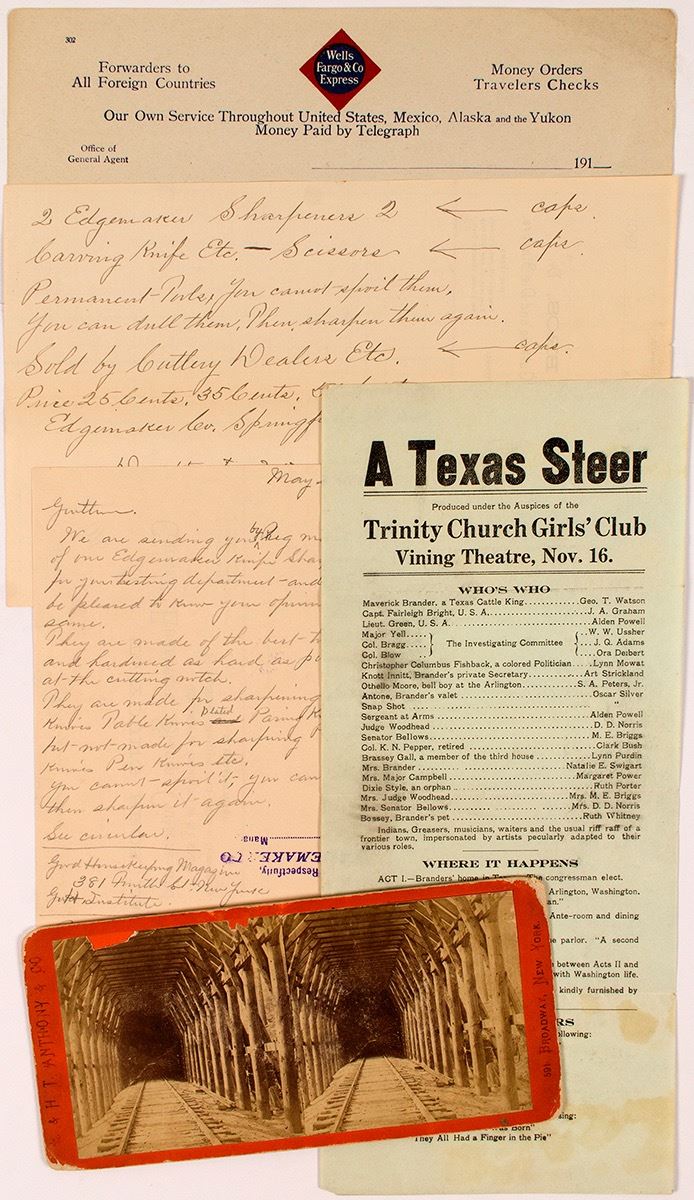 302
Wells
Fargo & Co
Express
Forwarders to
All Foreign Countries
Money Orders
Travelers Checks
Our Own Service Throughout United States, Mexico, Alaska and the Yukon
Money Paid by Telegraph
Office of
General Agent
191
2 Edgemaker Sharpeners 2 ← caps.
Carving Knife Etc. — Scissors ← caps.
Permanent Tools, You cannot spoil them,
You can dull them, Then, sharpen them again.
Sold by Cutlery Dealers Etc. ← caps.
Price 25 Cents, 35 Cents,
Edgemaker Co. Springf
May
We are sending you by
of our Edgemaker Knife Shar
for your testing department and
be pleased to know your opin
same.
They are made of the best
and hardened as hard as
at the cutting notch.
They are made for sharpening
Knives Table Knives plated
but not made for sharping
Knives Pen Knives etc.
You cannot spoil it, you can
then sharpen it again.
See circular.
Respectfully,
EMAKER CO
Mana
Good Housekeeping Magazine
381 Fourth St New York
Institute.
A Texas Steer
Produced under the Auspices of the
Trinity Church Girls' Club
Vining Theatre, Nov. 16.
WHO'S WHO
Maverick Brander, a Texas Cattle King............Geo. T. Watson
Capt. Fairleigh Bright, U. S. A.....................J. A. Graham
Lieut. Green, U. S. A...............................Alden Powell
Major Yell..... W. W. Ussher
Col. Bragg..... The Investigating Committee J. Q. Adams
Col. Blow..... Ora Deibert
Christopher Columbus Fishback, a colored Politician.....Lynn Mowat
Knott Innitt, Brander's private Secretary............Art Strickland
Othello Moore, bell boy at the Arlington............S. A. Peters, Jr.
Antone, Brander's valet..............................Oscar Silver
Snap Shot ............................................ "
Sergeant at Arms ....................................Alden Powell
Judge Woodhead.......................................D. D. Norris
Senator Bellows......................................M. E. Briggs
Col. K. N. Pepper, retired ..........................Clark Bush
Brassey Gall, a member of the third house............Lynn Purdin
Mrs. Brander ........................................Natalie E. Swigart
Mrs. Major Campbell..................................Margaret Power
Dixie Style, an orphan...............................Ruth Porter
Mrs. Judge Woodhead..................................Mrs. M. E. Briggs
Mrs. Senator Bellows.................................Mrs. D. D. Norris
Bossey, Brander's pet................................Ruth Whitney
Indians, Greasers, musicians, waiters and the usual riff raff of a
frontier town, impersonated by artists pecularly adapted to their
various roles.
WHERE IT HAPPENS
ACT I.—Branders' home in The congressman elect.
Arlington, Washington.
an."
Ante-room and dining
e parlor. "A second
between Acts II and
with Washington life.
kindly furnished by
RS
ollowing:
sing:
was Born"
They All Had a Finger in the Pie"
& H. T. ANTHONY & CO
591 BROADWAY, NEW YORK